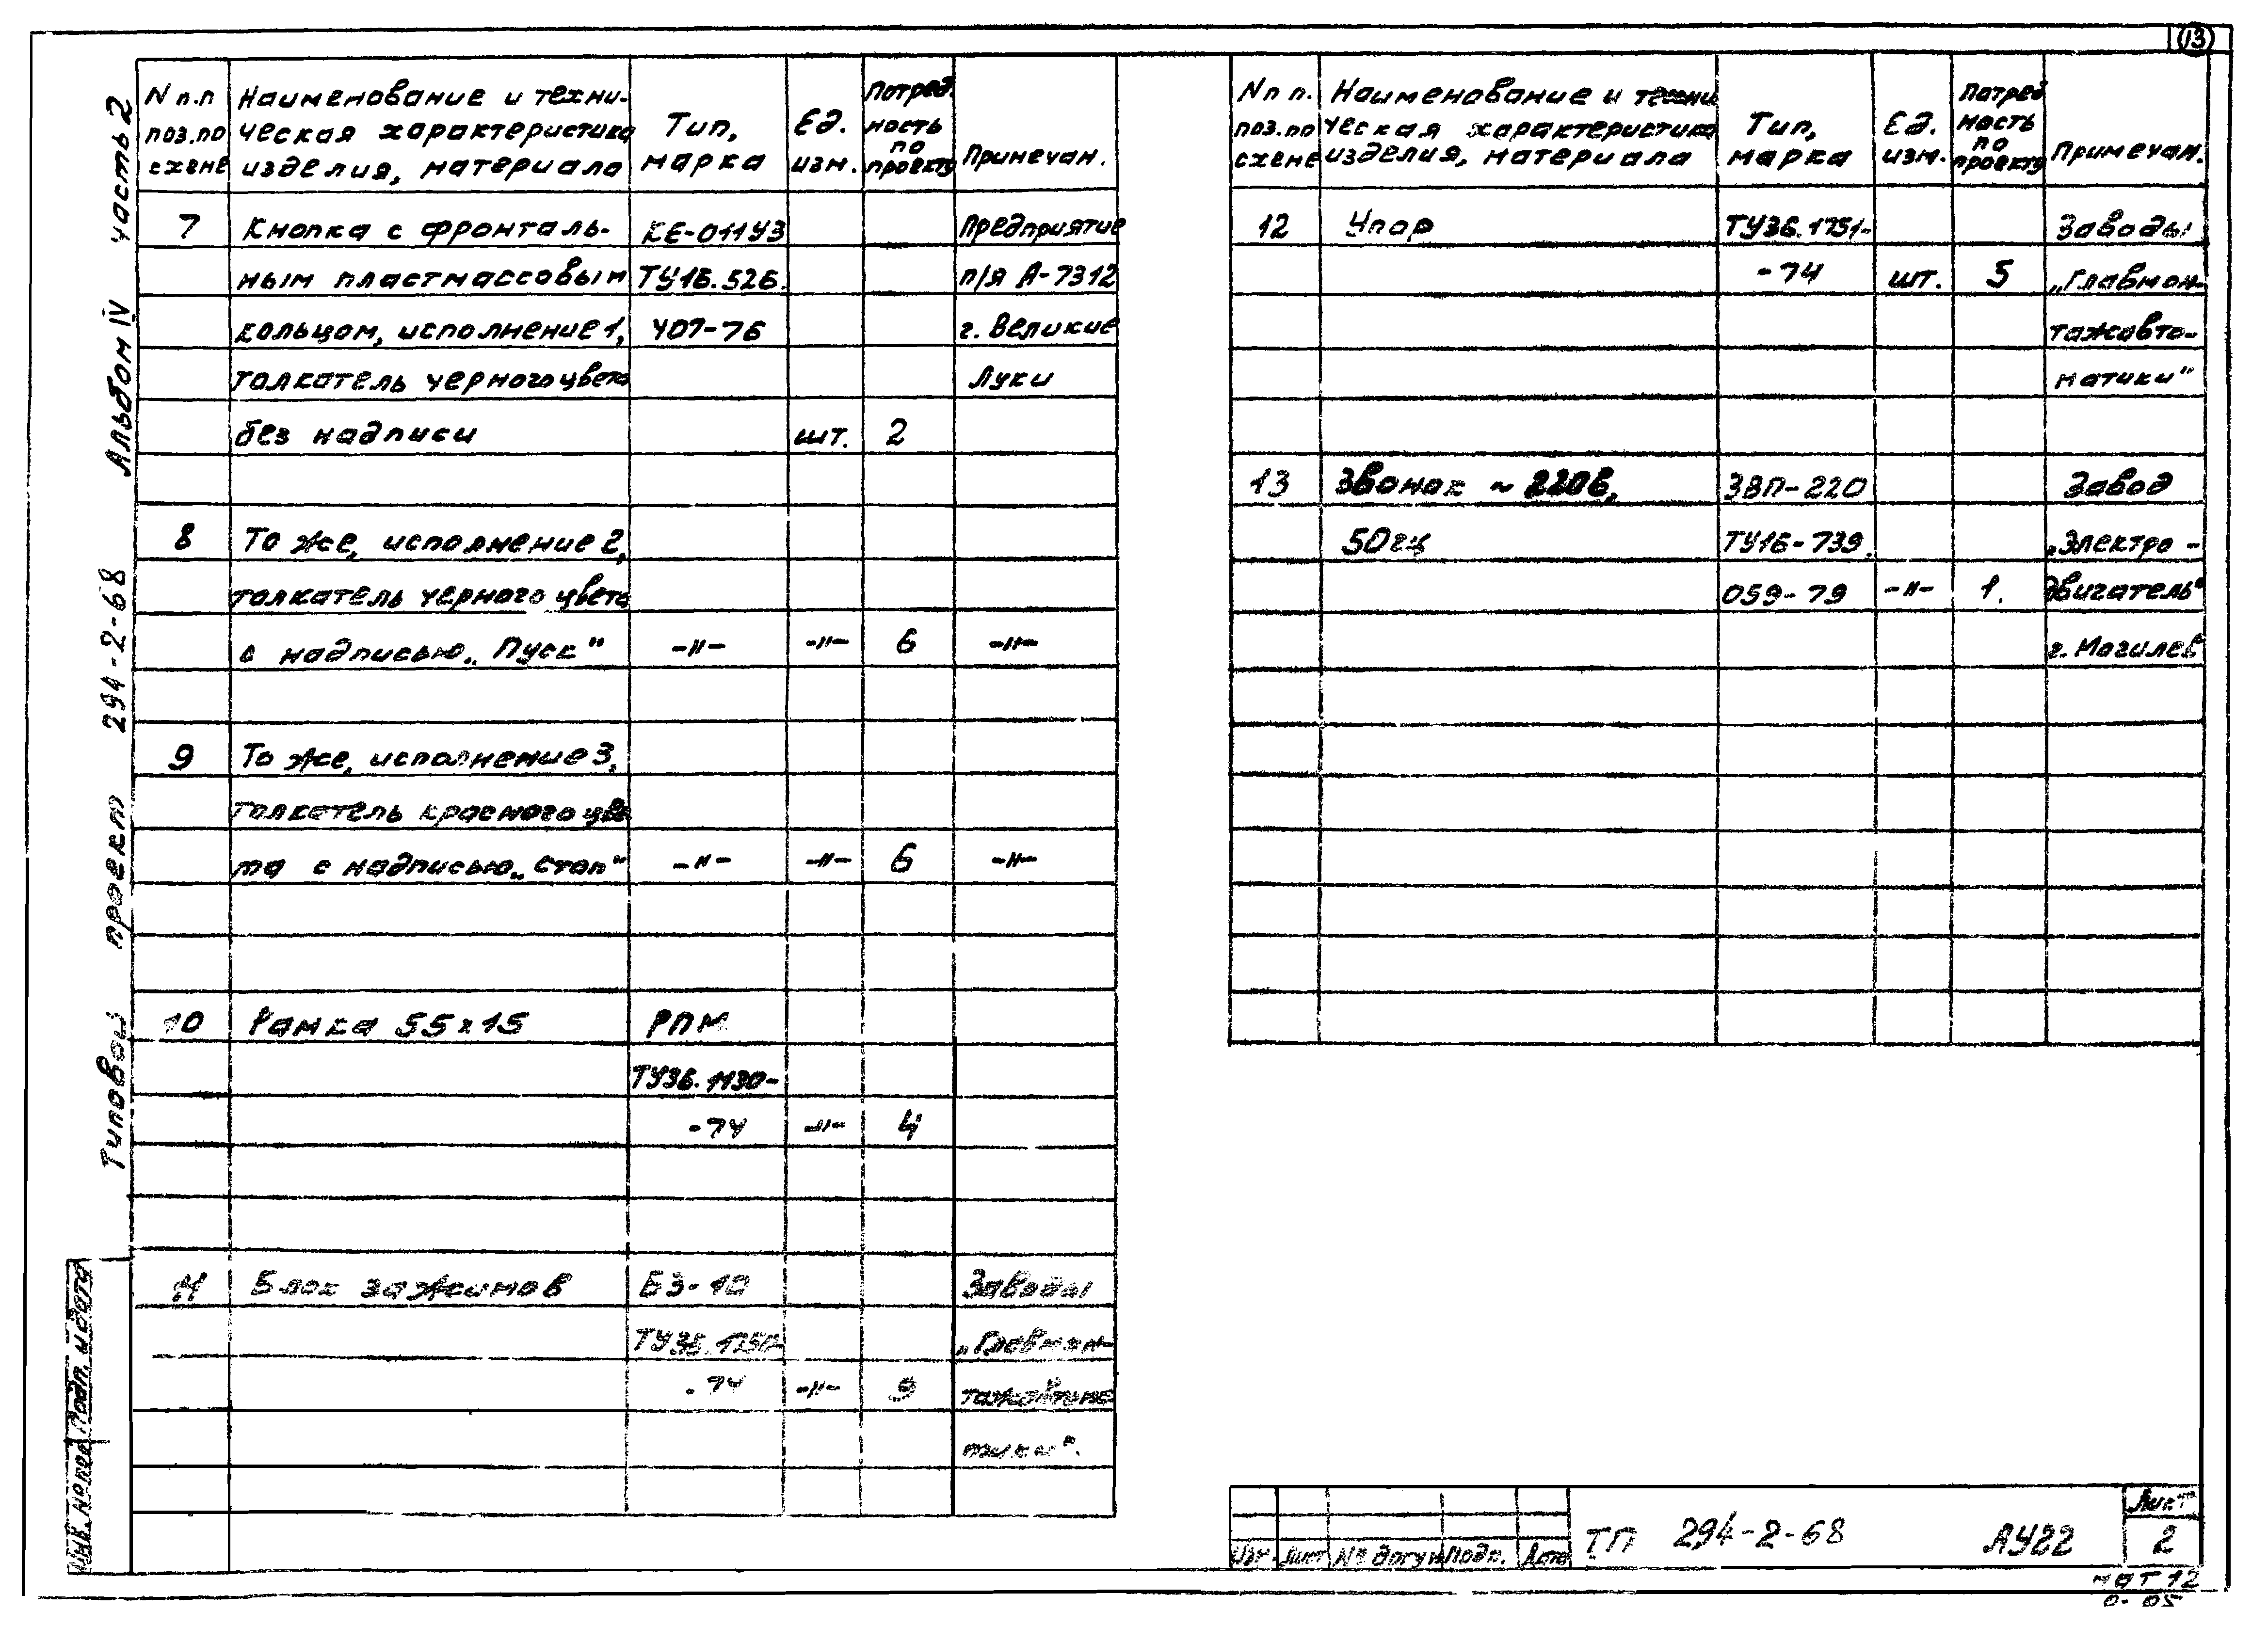 13
Типовой проект 294-2-68 Альбом IV часть 2
N п.п поз.по схеме
Наименование и техни-
ческая характеристика
изделия, материала
Тип,
марка
Ед.
изм.
Потреб.
ность
по
проекту
Примечан.
7 Кнопка с фронталь- КЕ-011У3 Предприятие
ным пластмассовым ТУ16.526. п/я А-7312
кольцом, исполнение 1, 407-76 г. Великие
толкатель черного цвета Луки
без надписи шт. 2
8 То же, исполнение 2,
толкатель черного цвета
с надписью „Пуск" -"- -"- 6 -"-
9 То же, исполнение 3,
толкатель красного цве
та с надписью „Стоп" -"- -"- 6 -"-
10 Рамка 55х15 РПМ
ТУ36.1130-
-74 -"- 4
11 Блок зажимов БЗ-10 Заводы
ТУ36.1750- „Главмон-
-74 -"- тажавтома
тики".
N п п. поз.по схеме
Наименование и техни
ческая характеристика
изделия, материала
Тип,
марка
Ед.
изм.
Потреб
ность
по
проекту
Примечан.
12 Упор ТУ36.1751- Заводы
-74 шт. 5 „Главмон-
тажавто-
матики"
13 Звонок ~ 220В, ЗВП-220 Завод
50гц ТУ16-739. „Электро-
059-79 -"- 1. двигатель"
г. Могилев
Инв. № подл. Подп. и дата
Изм. Лист № докум Подп. Дата
ТП 294-2-68 АУ22
Лист
2